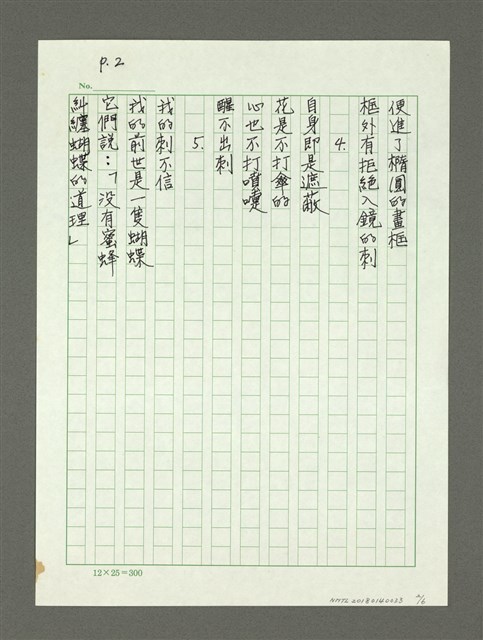 P.2
No.
便進了橢圓的畫框
框外有拒絕入鏡的刺
4.
自身即是遮蔽
花是不打傘的
心也不打噴嚏
醒不出刺
5.
我的刺不信
我的前世是一隻蝴蝶
它們說：「没有蜜蜂
糾纏蝴蝶的道理」
12×25=300
NMTL20180140033
2/6